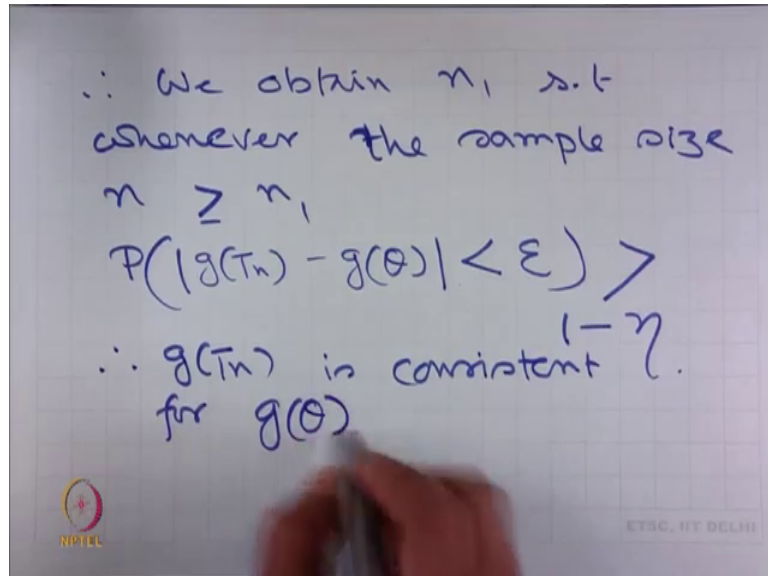 ∴ We obtain n₁ s.t
whenever the sample size
n ≥ n₁
P(|g(Tn) - g(θ)| < ε) >
1 - η.
∴ g(Tn) is consistent
for g(θ)
NPTEL
ETSC, IIT DELHI